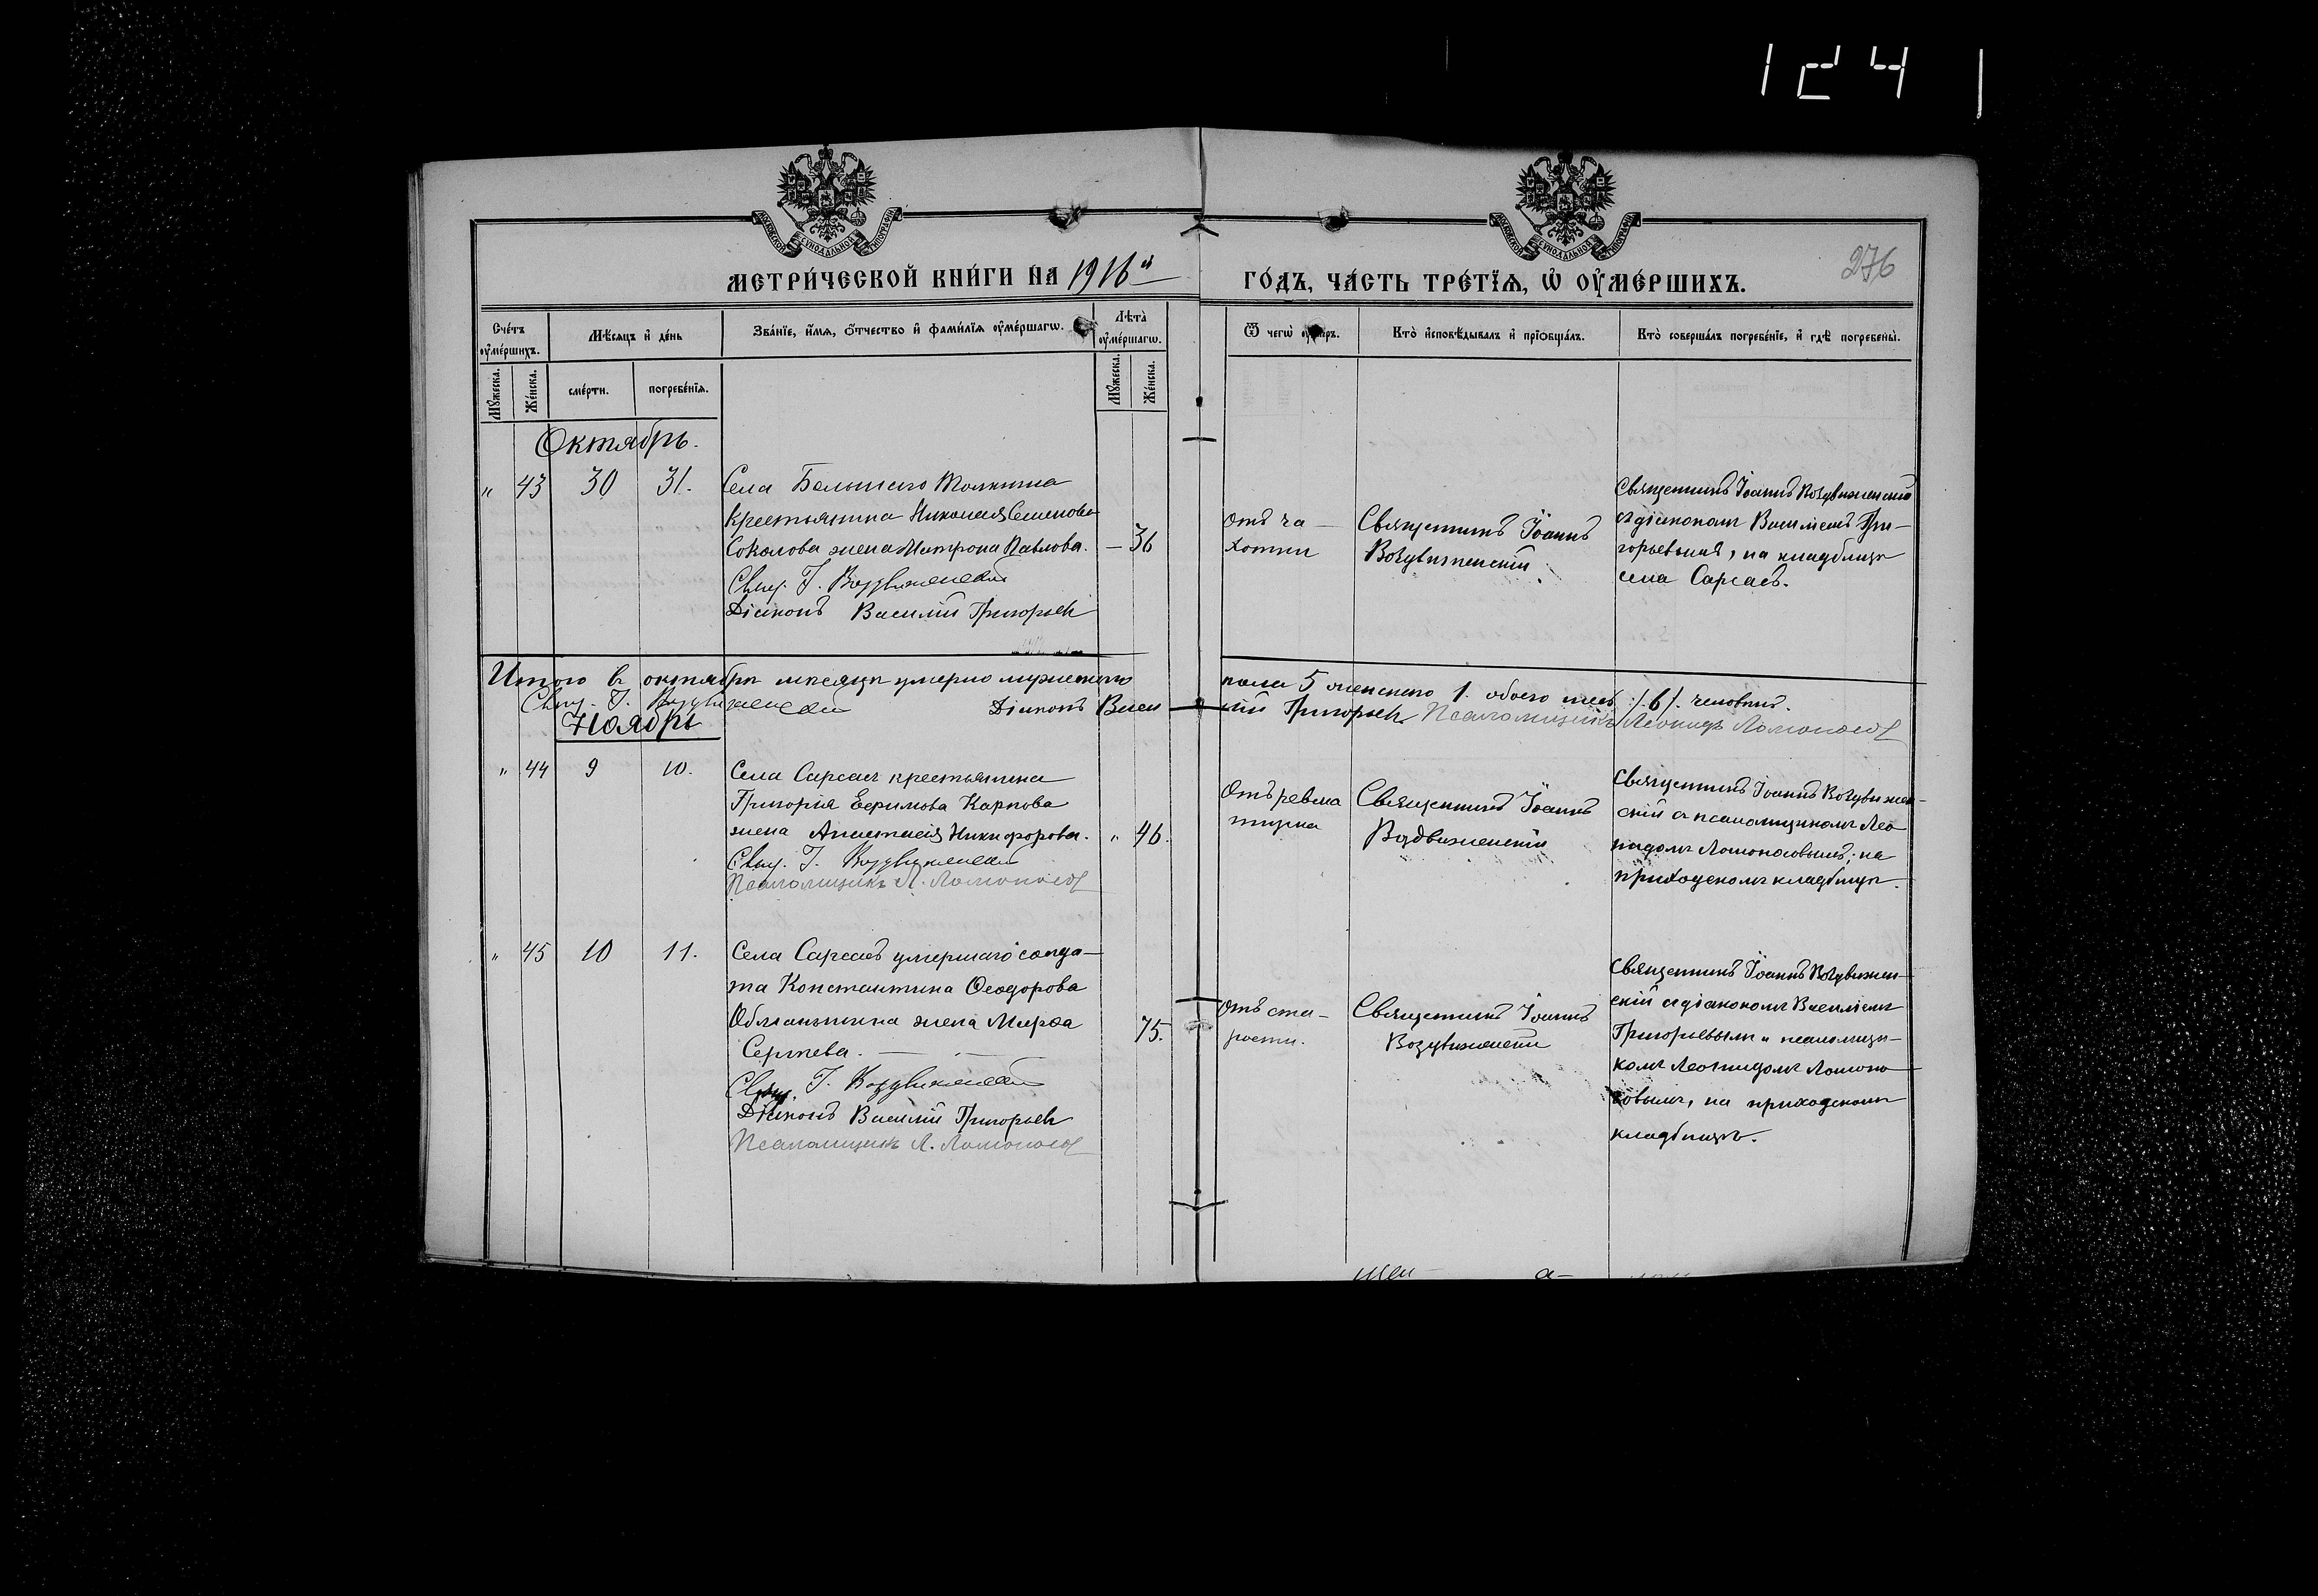 1241
МОСКОВСКОЙ СѴНОДАЛЬНОЙ ТИПОГРАФІИ
МОСКОВСКОЙ СѴНОДАЛЬНОЙ ТИПОГРАФІИ
МЕТРИ́ЧЕСКОЙ КНИ́ГИ НА 1916й
ГО́ДЪ, ЧА́СТЬ ТРЕ́ТЇѦ, Ѡ҆ ОУ҆МЕ́РШИХЪ.
276
Сче́тъ оу҆ме́ршихъ.
Мѣ́сѧцъ и҆ де́нь
Зва́нїе, и҆́мѧ, ѻ҆́тчество и҆ фами́лїѧ оу҆ме́ршагѡ.
Лѣ̀та̀ оу҆ме́ршагѡ.
Ѿ чегѡ̀
Кто̀ и҆сповѣ́дывалъ и҆ прїѻбща́лъ.
Кто̀ соверша́лъ погребе́нїе, и҆ гдѣ̀ погребены̀.
Мꙋ́жеска.
Же́нска.
сме́рти.
погребе́нїѧ.
Мꙋ́жеска.
Же́нска.
Октябрь.
" 43 30 31.
Села Большого Толкина
крестьянина Николая Семенова
Соколова жена Матрона Павлова. — 36
Свящ. І. Воздвиженскій
Діаконъ Василій Григорьев
Отъ ча-
хотки
Священникъ Іоаннъ
Воздвиженскій
Священникъ Іоаннъ Воздвиженскій
съ діакономъ Василіемъ Гри-
горьевымъ, на кладбищѣ
села Сарсасъ.
Итого въ октябрѣ мѣсяцѣ умерло мужескаго пола 5 женскаго 1. обоего пола ./.6/. человѣкъ.
Свящ. І. Воздвиженскій Діаконъ Василій Григорьев Псаломщикъ Леонидъ Ломоносов
Ноябрь
" 44 9 10.
Села Сарсасъ крестьянина
Григорія Ефимова Карпова
жена Анастасія Никифорова. " 46.
Свящ. І. Воздвиженскій
Псаломщикъ Л. Ломоносов
Отъ ревма
тизма
Священникъ Іоаннъ
Воздвиженскій
Священникъ Іоаннъ Воздвижен-
скій съ псаломщикомъ Лео
нидомъ Ломоносовымъ, на
приходскомъ кладбищѣ.
" 45 10 11.
Села Сарсасъ умершаго солда-
та Константина Ѳеодорова
жена Марѳа
Сергѣева. — 75.
Свящ. І. Воздвиженскій
Діаконъ Василій Григорьев
Псаломщикъ Л. Ломоносов
Отъ ста-
рости.
Священникъ Іоаннъ
Воздвиженскій
Священникъ Іоаннъ Воздвижен-
скій съ діакономъ Василіемъ
Григорьевымъ и псаломщи-
комъ Леонидомъ Ломоно
совымъ, на приходскомъ
кладбищѣ.